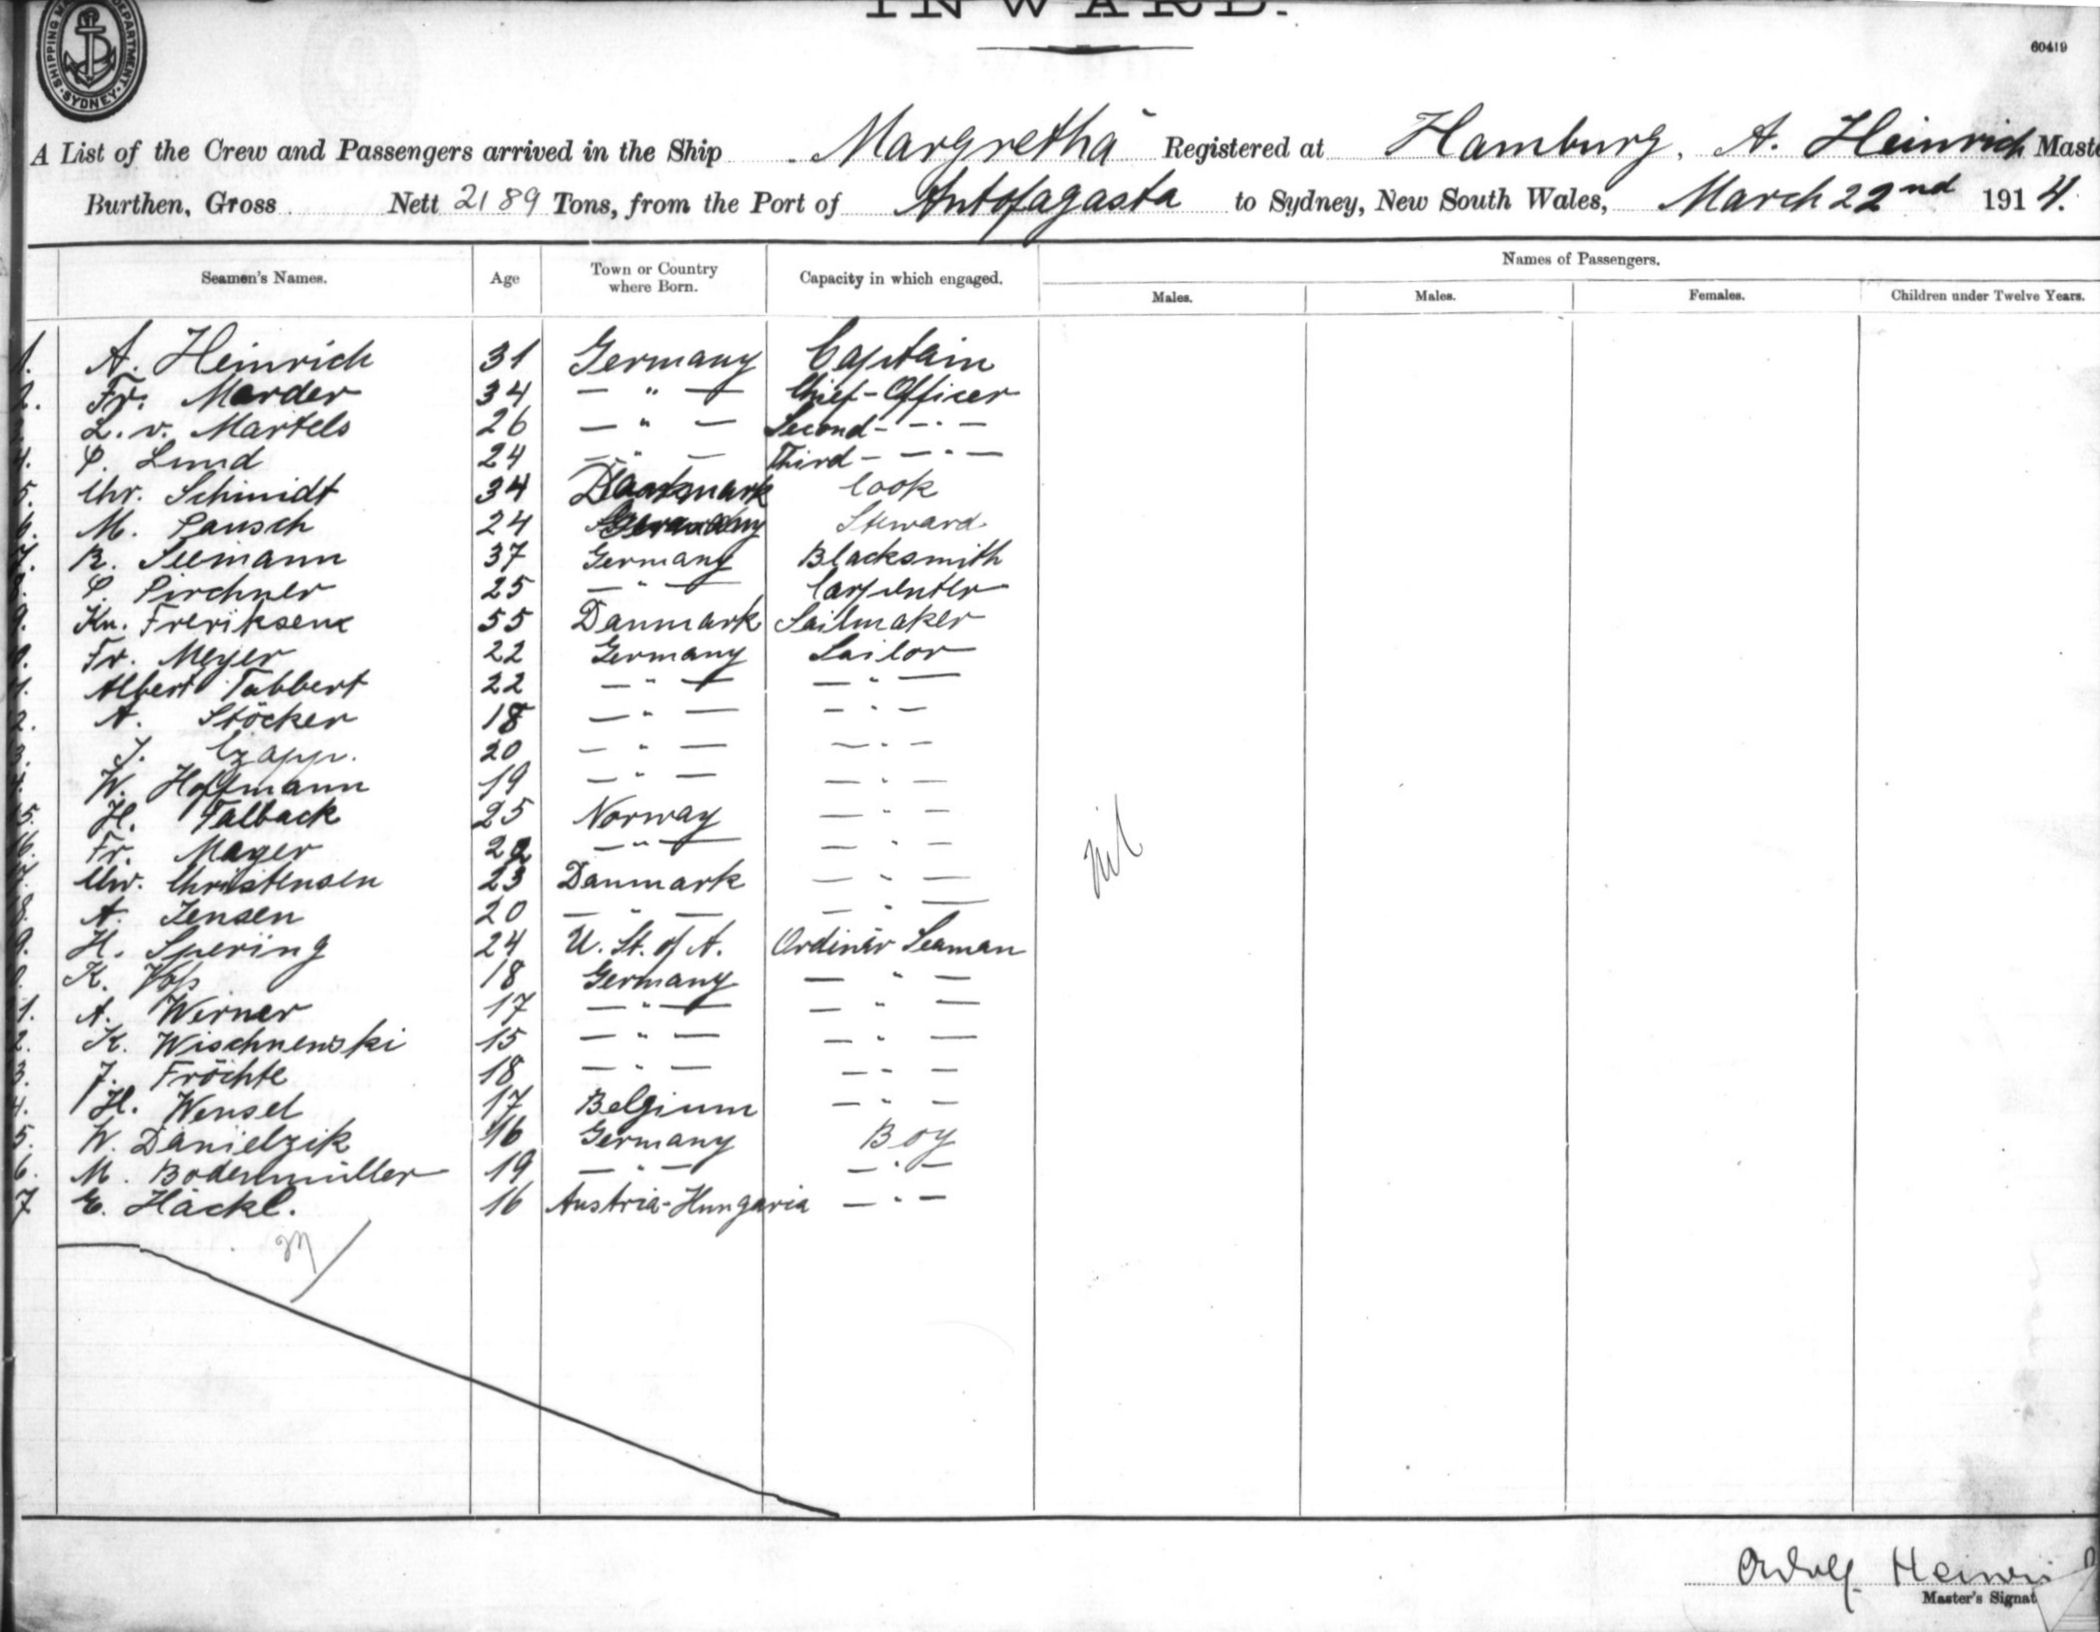 INWARD.
60419
SHIPPING DEPARTMENT SYDNEY
A List of the Crew and Passengers arrived in the Ship "Margretha" Registered at Hamburg, A. Heinrich Maste
Burthen, Gross Nett 2189 Tons, from the Port of Antofagasta to Sydney, New South Wales, March 22nd 1914.
Seamen's Names. Age Town or Country where Born. Capacity in which engaged. Names of Passengers.
Males. Males. Females. Children under Twelve Years.
1. A. Heinrich 31 Germany Captain
2. Fr. Marder 34 — " — Chief-Officer
L. v. Martels 26 — " — Second- — " —
4. P. Lund 24 — " — Third- — " —
5. Chr. Schmidt 34 Danmark Cook
6. M. Pausch 24 Germany Steward
7. R. Seemann 37 Germany Blacksmith
8. P. Pirchner 25 — " — Carpenter
9. Kn. Freriksen 55 Danmark Sailmaker
0. Fr. Meyer 22 Germany Sailor
1. Albert Tabbert 22 — " — — " —
2. A. Stöcker 18 — " — — " —
3. J. Czapp. 20 — " — — " —
4. W. Hoffmann 19 — " — — " —
5. H. Falback 25 Norway — " —
16. Fr. Mager 22 — " — — " —
7. Chr. Christensen 23 Danmark — " —
8. A. Jensen 20 — " — — " —
9. H. Spering 24 U. St. of A. Ordinär Seaman
0. K. Voß 18 Germany — " —
1. A. Werner 17 — " — — " —
2. K. Wischnewski 15 — " — — " —
3. J. Fröchte 18 — " — — " —
4. H. Wensel 17 Belgium — " —
5. W. Danielzik 16 Germany Boy
6. M. Bodenmüller 19 — " — — " —
7 E. Häckl. 16 Austria-Hungaria — " —
nil
27/
Adolf Heinri
Master's Signat